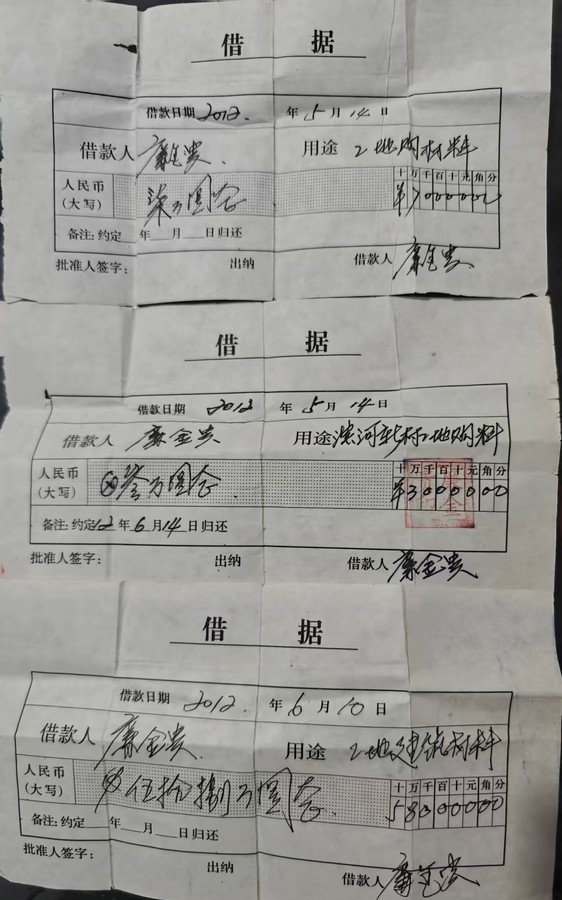 借 据
借款日期 2012 年 5 月 14 日
借款人 廉金贵 用途 工地购材料
人民币(大写) 柒万圆全 十万千百十元角分 ¥7000000
备注:约定 年 月 日归还
批准人签字: 出纳 借款人 廉金贵
借 据
借款日期 2012 年 5 月 14 日
借款人 廉金贵 用途 滨河 工地购料
人民币(大写) 叁万圆全 十万千百十元角分 ¥3000000
备注:约定 12 年 6 月 14 日归还
批准人签字: 出纳 借款人 廉金贵
借 据
借款日期 2012 年 6 月 10 日
借款人 廉金贵 用途 工地建筑材料
人民币(大写) 伍拾捌万圆全 十万千百十元角分 58000000
备注:约定 年 月 日归还
批准人签字: 出纳 借款人 廉金贵